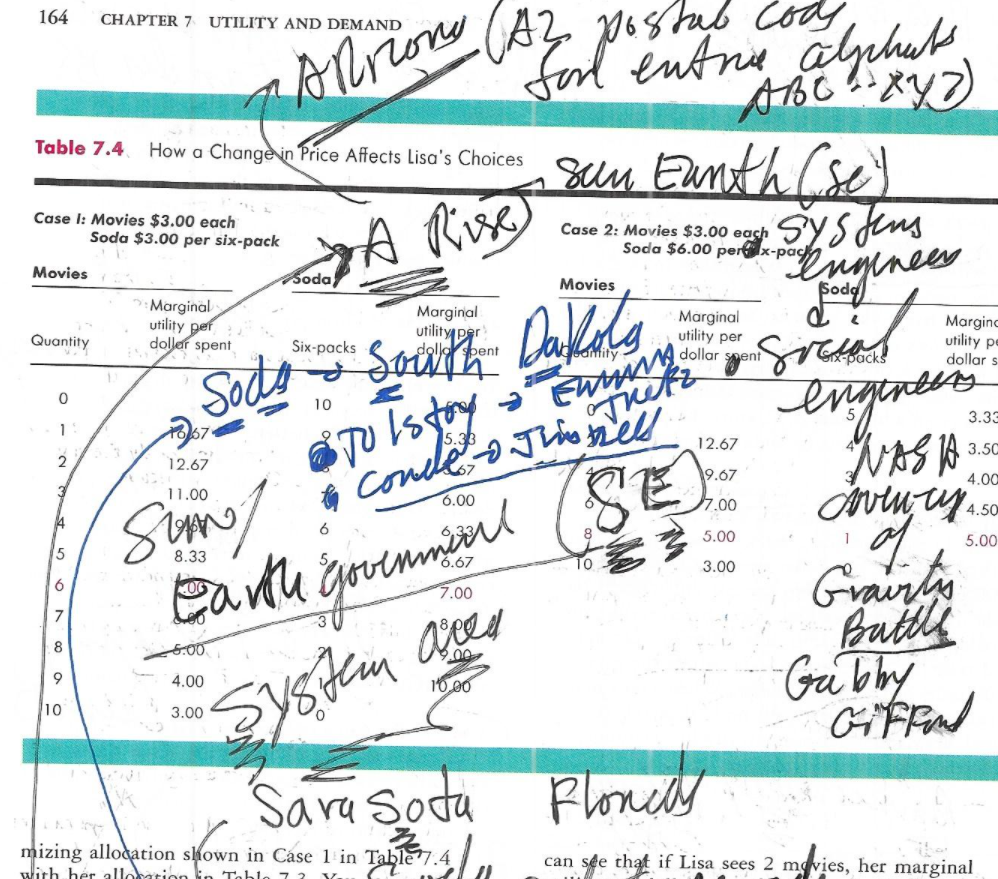 164 CHAPTER 7 UTILITY AND DEMAND
(AZ postal code
for entire alphabets
ABC -- XYZ)
Table 7.4 How a Change in Price Affects Lisa's Choices
Sun Earth (SE)
Case 1: Movies $3.00 each
Soda $3.00 per six-pack
A Rise
Case 2: Movies $3.00 each
Soda $6.00 per six-pack
Systems
engineers
&
Social
engineers
Movies Soda Movies Soda
Marginal utility per dollar spent
Marginal utility per dollar spent
Marginal utility per dollar spent
Quantity Six-packs Quantity Six-packs
Soda → South Dakota
0 10 5.00 0 5 3.33
1 16.67 9 5.33 12.67 4 3.50
2 12.67 5.67 4 9.67 3 4.00
3 11.00 6.00 7.00 4.50
4 6 6.33 8 5.00 1 5.00
5 8.33 5 6.67 10 3.00
6 7.00
7 6.00 3 8.00
8 5.00 2 9.00
9 4.00 1 10.00
10 3.00 0
(SE)
Sun/
Earth government
System area
NASA
of
Gravity
Battle
Gabby
Sara Sota
mizing allocation shown in Case 1 in Table 7.4
can see that if Lisa sees 2 movies, her marginal